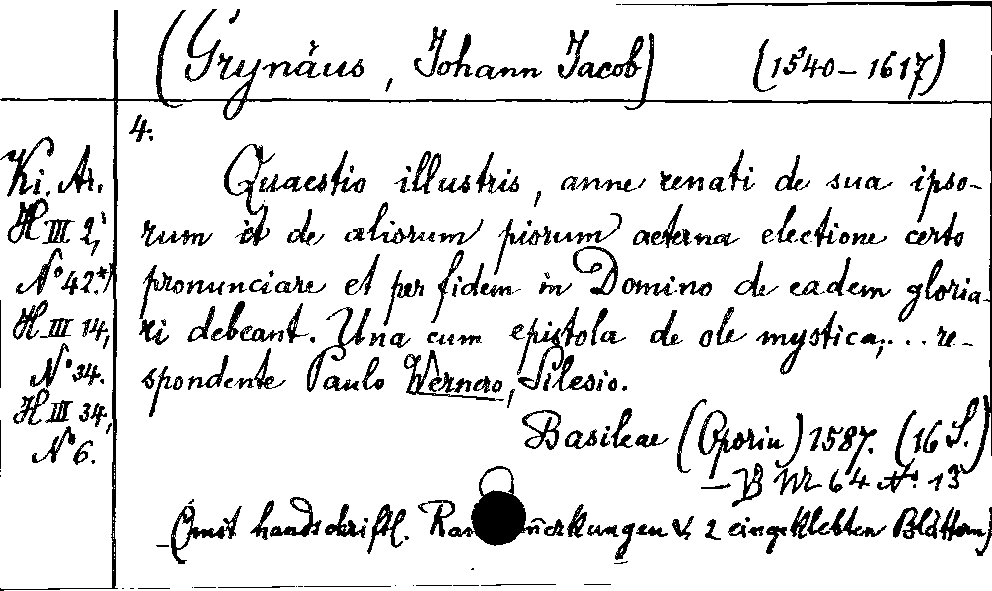 (Grynäus, Johann Jacob) (1540-1617)
4.
Ki. Ar.
H III 2,
No 42.*)
H III 14,
No 34.
H III 34,
No 6.
Quaestio illustris, anne renati de sua ipso-
rum et de aliorum piorum aeterna electione certo
pronunciare et per fidem in Domino de eadem gloria-
ri debeant. Una cum epistola de ole mystica; ... re-
spondente Paulo Wernero, Silesio.
Basileae (Oporin) 1587. (16 S.)
- B VI 64 No. 13
(mit handschriftl. Randbemerkungen & 2 eingeklebten Blättern)